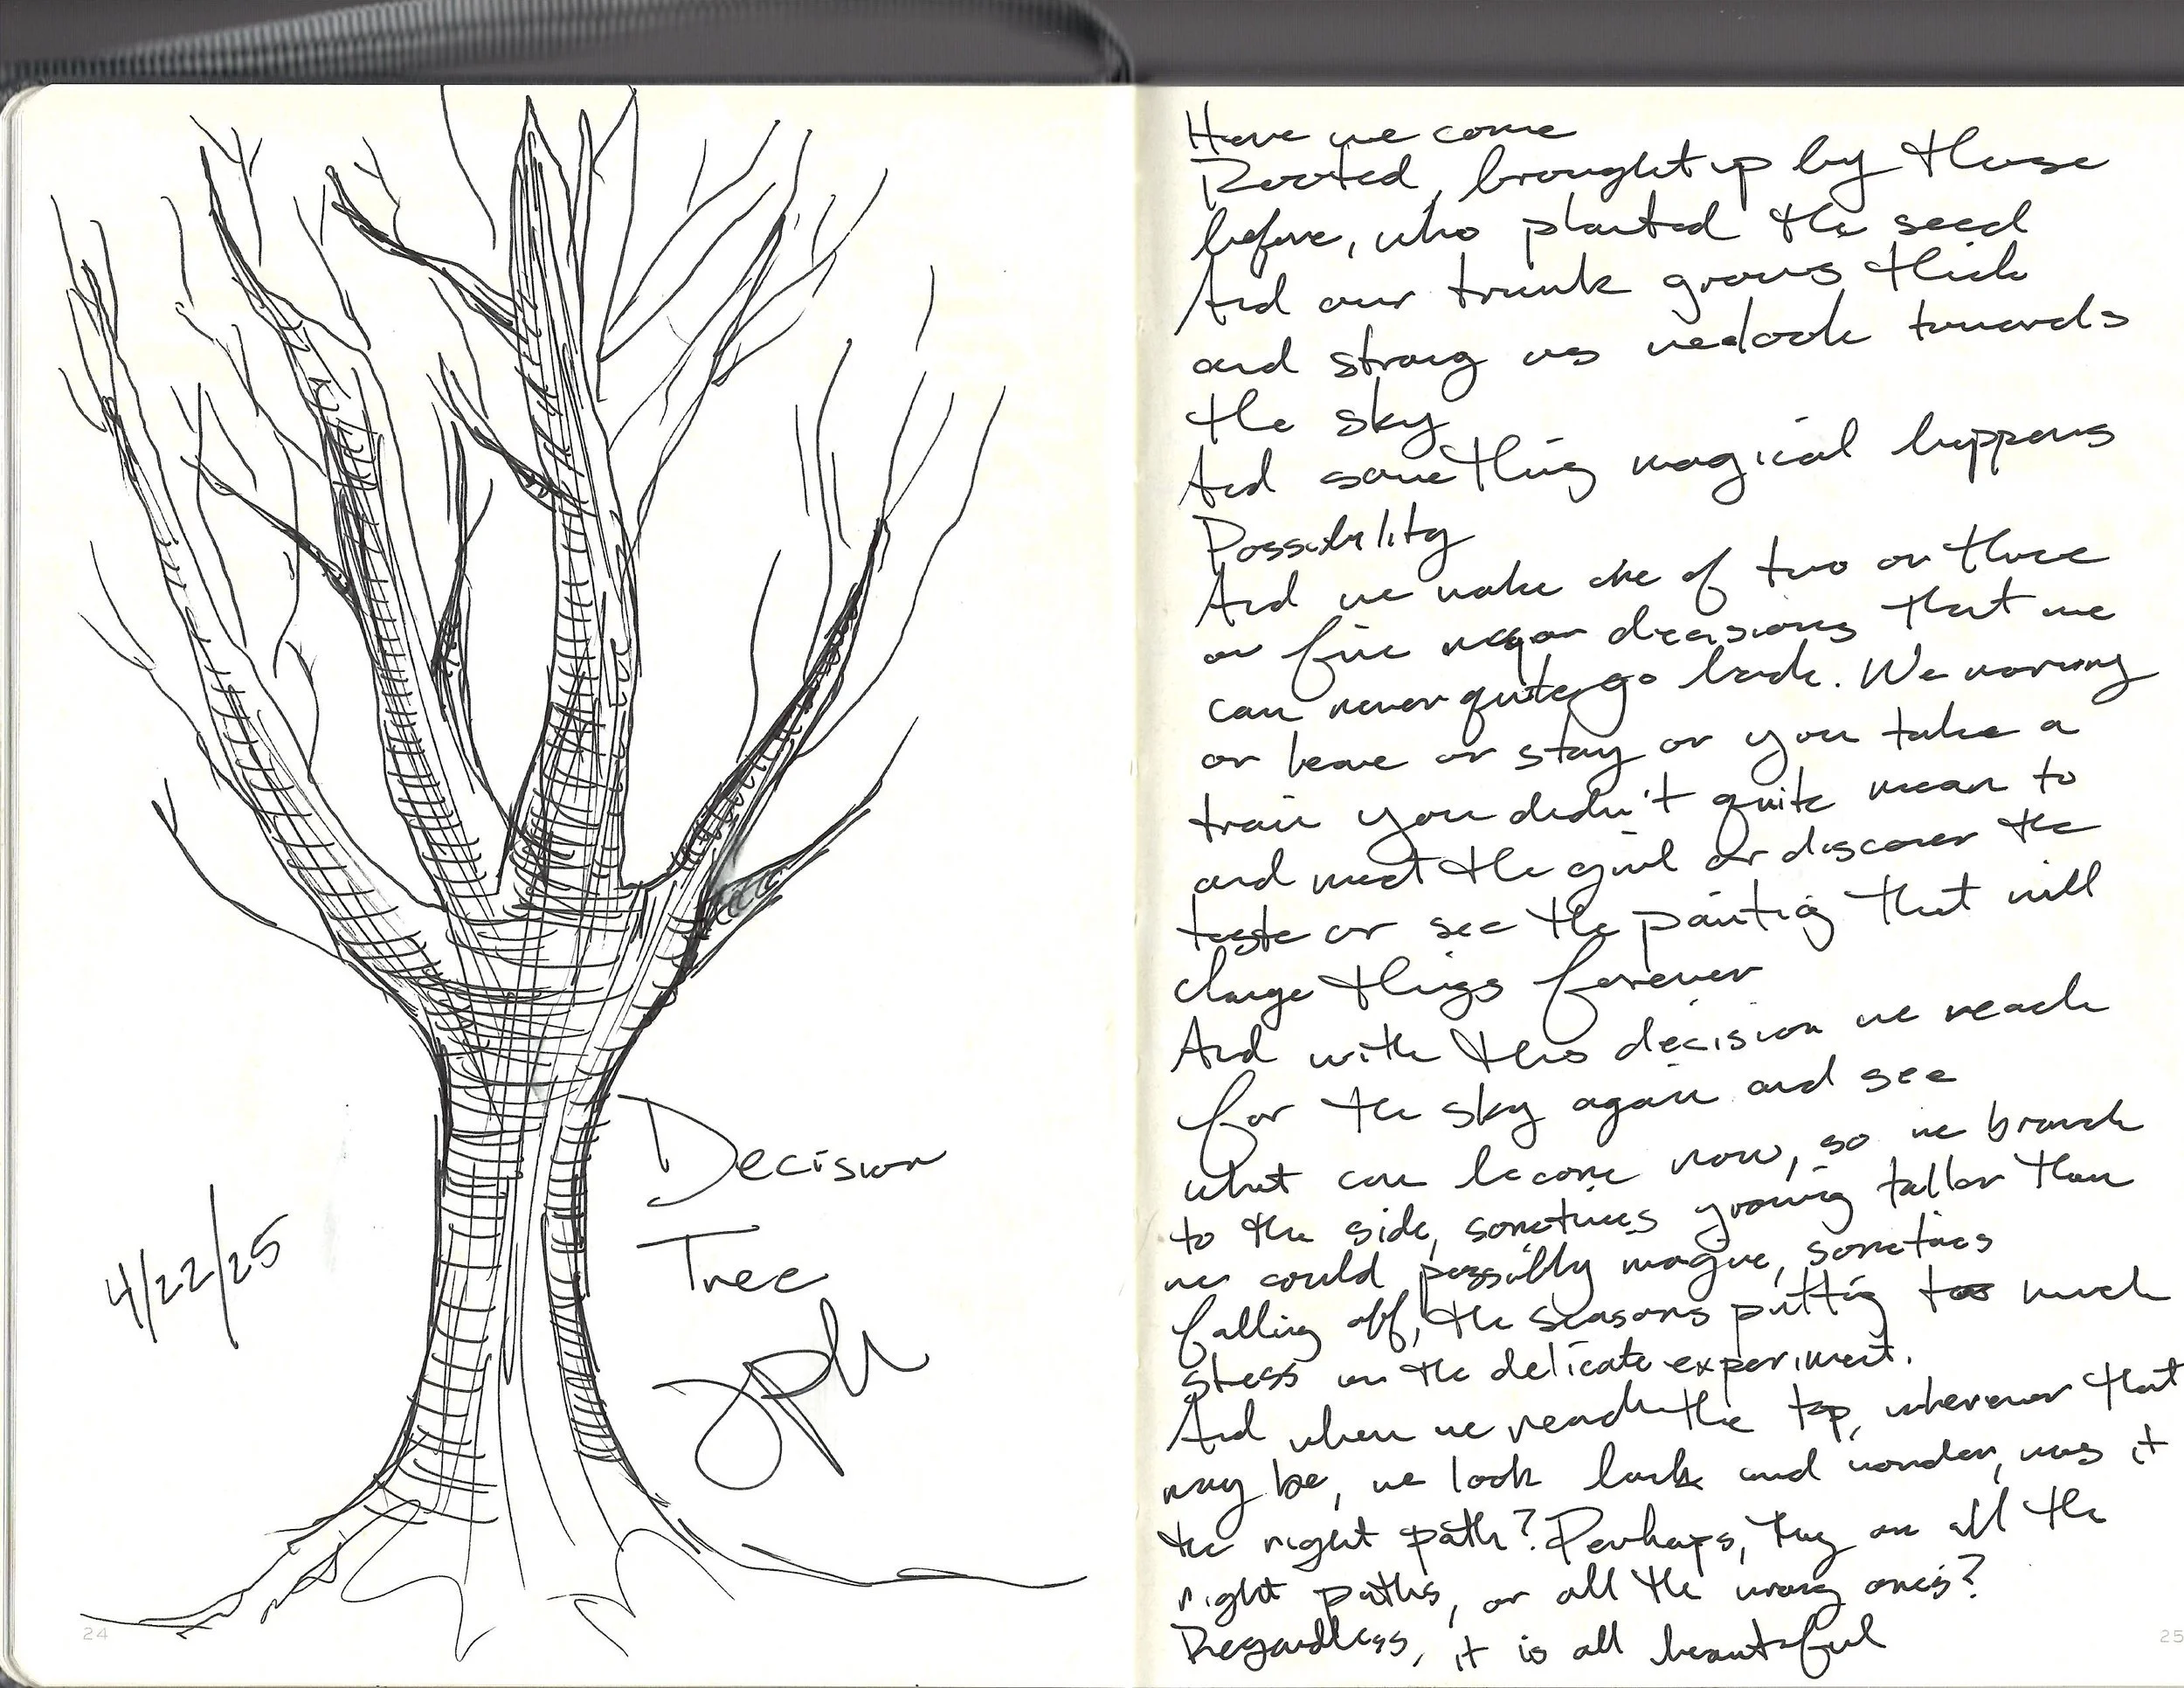 4/22/25
Decision
Tree
JPH
24
Have we come
Rooted, brought up by those
before, who planted the seed
And our trunk grows thick
and strong as we look towards
the sky
And something magical happens
Possibility
And we make one of two or three
or five major decisions that we
can never quite go back. We marry
or leave or stay or you take a
train you didn't quite mean to
and meet the girl or discover the
taste or see the painting that will
change things forever
And with this decision we reach
for the sky again and see
what can become now, so we branch
to the side, sometimes growing taller than
we could possibly imagine, sometimes
falling off, the seasons putting too much
stress on the delicate experiment.
And when we reach the top, wherever that
may be, we look back and wonder, was it
the right path? Perhaps, they are all the
right paths, or all the wrong ones?
Regardless, it is all beautiful
25